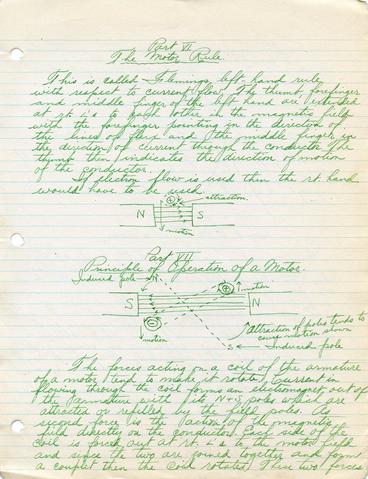 Part VI
The Motor Rule.
This is called Flemings left-hand rule
with respect to current flow. The thumb, forefinger
and middle finger of the left hand are extended
at rt. L's to each other in the magnetic field
with the forefinger pointing in the direction of
the lines of flux and the middle finger in
the direction of current through the conductor. The
thumb then indicates the direction of motion
of the conductor.
If electron flow is used then the rt. hand
would have to be used.
attraction.
N S
motion
Part VII
Principle of Operation of a Motor.
Induced pole N
motion
S N
motion
attraction of poles tends to
cause motion shown
S Induced pole
The forces acting on a coil of the armature
of a motor tend to make it rotate. Current in
flowing through the coil forms an electromagnet out of
the armature with its N+S poles which are
attracted or repelled by the field poles. As
second force is the action of the magnetic
field directly on the conductor. Each side of the
coil is forced out at rt. L's to the motor field
and since the two are joined together and form
a couplet then the coil rotates. These two forces